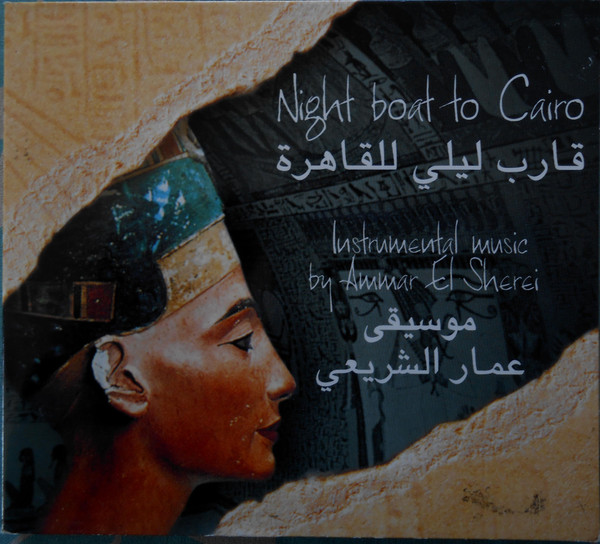 Night boat to Cairo
قارب ليلي للقاهرة
Instrumental music
by Ammar El Sherei
موسيقى
عمار الشريعي